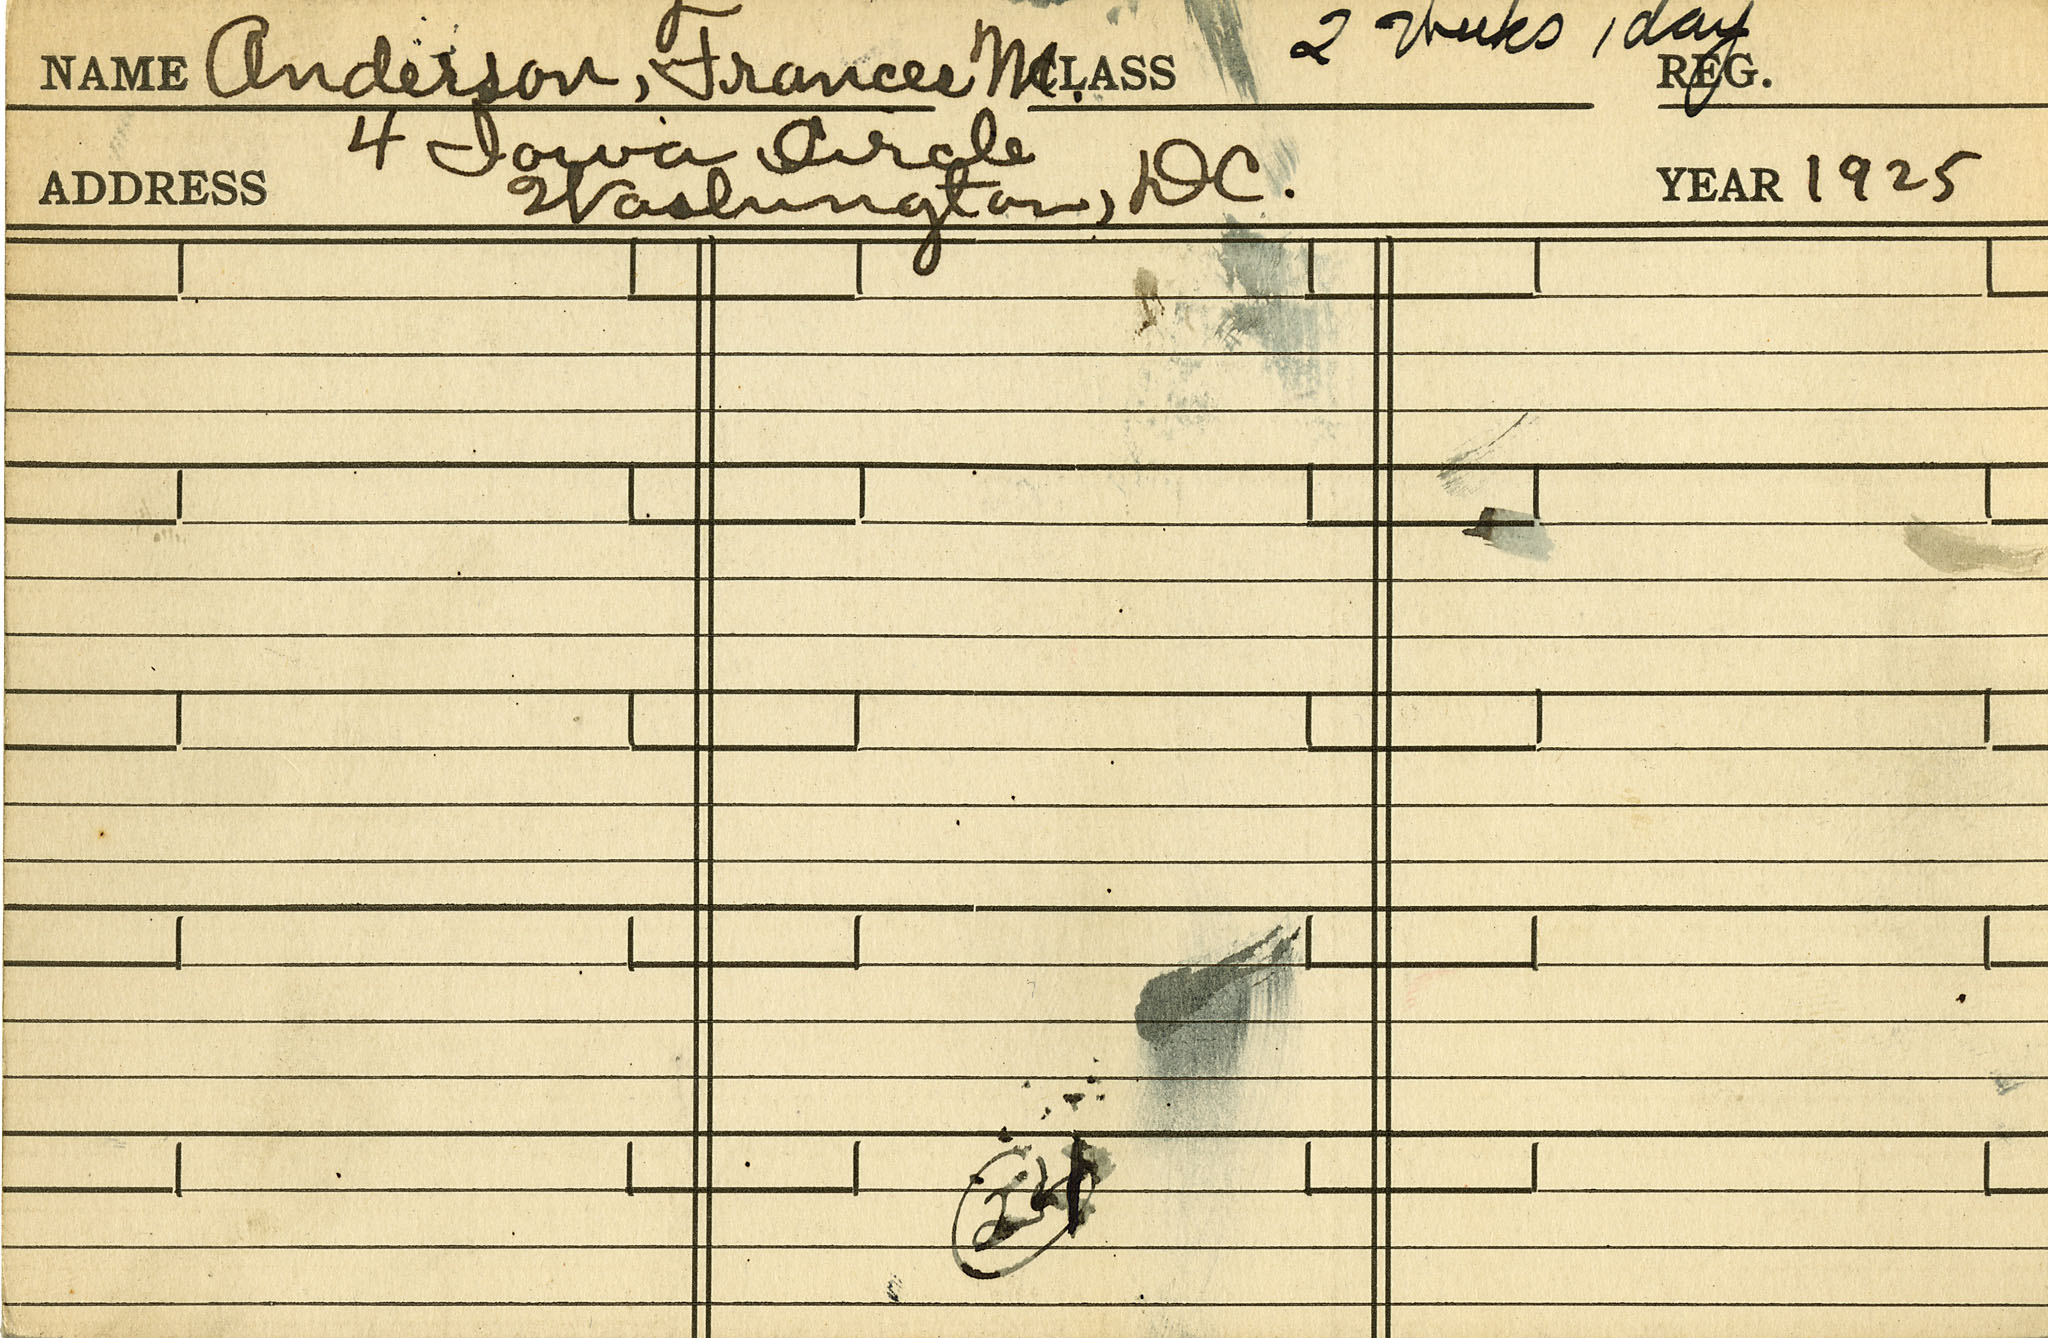 2 Weeks 1 day
NAME Anderson, Frances M. CLASS REG.
4 Iowa Circle
ADDRESS Washington, DC. YEAR 1925
24